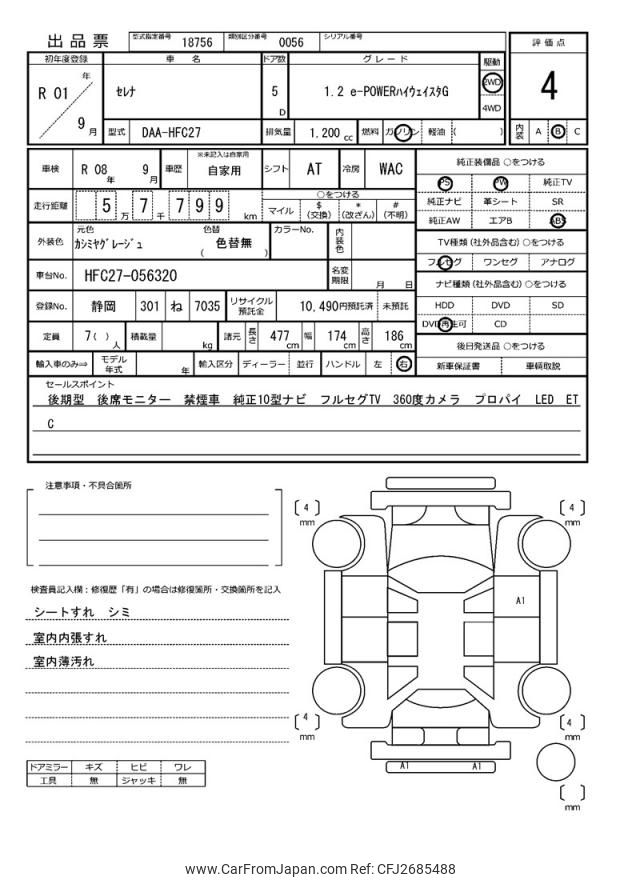 出品票 型式指定番号 18756 類別区分番号 0056 シリアル番号
評価点
4
内装 A B C
初年度登録 車名 ドア数 グレード 駆動
R 01 年 9 月 セレナ 5 D 1.2 e-POWERハイウェイスタG 2WD 4WD
型式 DAA-HFC27 排気量 1,200 cc 燃料 ガソリン 軽油 ( )
車検 R 08 年 9 月 車歴 ※未記入は自家用 自家用 シフト AT 冷房 WAC
走行距離 5 万 7 千 7 9 9 km ○をつける
マイル $ (交換) * (改ざん) # (不明)
外装色 元色 カシミヤグレージュ 色替 ( 色替無 ) カラーNo. 内装色
車台No. HFC27-056320 名変期限 月 日
登録No. 静岡 301 ね 7035 リサイクル預託金 10,490円預託済 未預託
定員 7 ( ) 人 積載量 kg 諸元 長さ 477 cm 幅 174 cm 高さ 186 cm
輸入車のみ⇒ モデル年式 年 輸入区分 ディーラー 並行 ハンドル 左 右
純正装備品 ○をつける
PS PW 純正TV
純正ナビ 革シート SR
純正AW エアB ABS
TV種類 (社外品含む) ○をつける
フルセグ ワンセグ アナログ
ナビ種類 (社外品含む) ○をつける
HDD DVD SD
DVD再生可 CD
後日発送品 ○をつける
新車保証書 車輌取説
セールスポイント
後期型 後席モニター 禁煙車 純正10型ナビ フルセグTV 360度カメラ プロパイ LED ET
C
注意事項・不具合箇所
検査員記入欄：修復歴「有」の場合は修復箇所・交換箇所を記入
シートすれ シミ
室内内張すれ
室内薄汚れ
ドアミラー キズ ヒビ ワレ
工具 無 ジャッキ 無
[ 4 ] mm
[ 4 ] mm
A1
[ 4 ] mm
[ 4 ] mm
A1 A1
[ ] mm
www.CarFromJapan.com Ref: CFJ2685488